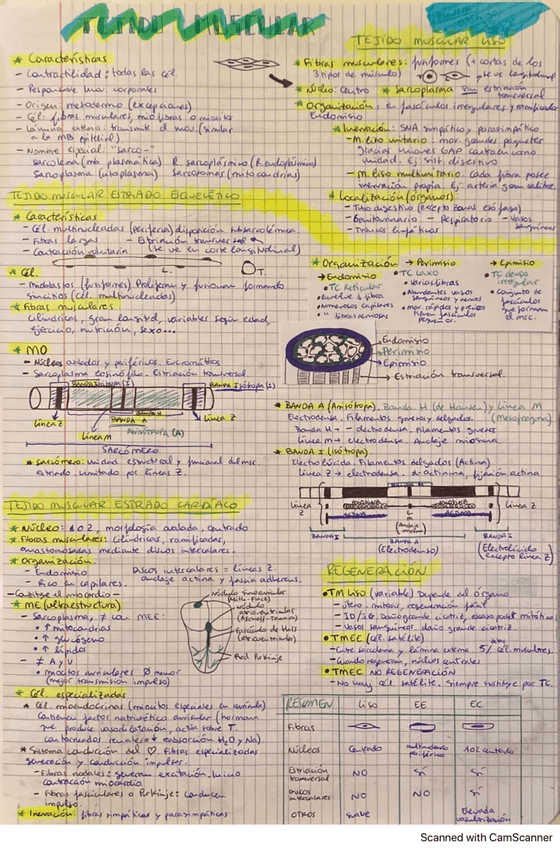 TEJIDO MUSCULAR
Características
- Contractilidad: todas las cél.
- Origen mesodermo (excepciones)
- Cél: fibras musculares, miofibras o miocito
- Lámina externa: transmite el mov. (similar
a la MB epitelio)
- Nombre especial: "sarco-"
Sarcolema (mb plasmática) R. sarcoplásmico (R. endoplásmico)
Sarcoplasma (citoplasma) Sarcosomas (mitocondrias)
TEJIDO MUSCULAR ESTRIADO ESQUELÉTICO
Características
- Cél. multinucleadas (periferia) disposición subsarcolémica
- Fibras largas - Estriación transversal
- Contracción voluntaria (se ve en corte longitudinal)
L.
T.
Cél.
- Mioblastos (fusiformes) Proliferan y fusionan formando
sincitios (cél multinucleadas)
Fibras musculares:
Cilíndricas, gran longitud, variables según edad,
ejercicio, nutrición, sexo...
MO
- Núcleos ovalados y periféricos. Eucromáticos
- Sarcoplasma eosinófilo. Estriación transversal.
Banda I isótropa (I)
BANDA H
BANDA A
ANISÓTROPA (A)
Línea Z
Línea M
Línea Z
SARCÓMERO
Sarcómero: unidad estructural y funcional del msc.
estriado. Limitado por líneas Z.
TEJIDO MUSCULAR ESTRIADO CARDÍACO
Núcleo: 1 o 2, morfología ovalada, centrado
Fibras musculares: Cilíndricas, ramificadas,
anastomosadas mediante discos intercalares.
Organización:
- Endomisio
- Rico en capilares.
Discos intercalares = líneas Z.
anclaje actina y fascia adherens.
- Constituye el miocardio -
ME (ultraestructura)
- Sarcoplasma, ≠ con MEE:
↑ mitocondrias
↑ glucógeno
↑ lípidos
- ≠ A y V
miocitos auriculares Ø menor
(mejor transmisión impulso)
Nódulo sinoauricular
(Keith-Flack)
Nódulo
atrioventricular
(Aschoff-Tawara)
Fascículo de Hiss
(Atrioventricular)
Red Purkinje
Cél. especializadas
Cél. mioendocrinas (miocitos especiales en aurícula)
Contienen factor natriurético auricular (hormona
que produce vasodilatación, actúa sobre T.
contorneados renales → absorción H₂O y Na)
Sistema conducción del ♡. Fibras especializadas
generación y conducción impulsos.
- Fibras nodales: generan excitación. Inicio
contracción miocardio
- Fibras fasciculares o Purkinje: conducen
impulso.
Inervación: fibras simpáticas y parasimpáticas
TEJIDO MUSCULAR LISO
Fibras musculares: fusiformes (+ cortas de los
3 tipos de músculo)
Núcleo: Centro Sarcoplasma sin estriación
transversal
Organización: en fascículos irregulares y ramificados
Endomisio
Inervación: SNA simpático y parasimpático
- M. liso unitario: mov. grandes paquetes
gracias uniones GAP contraen como
unidad. Ej: sist. digestivo
- M. liso multiunitario: cada fibra posee
inervación propia. Ej: arteria gran calibre
Localización (órganos):
- Tubo digestivo (excepto zonas esófago)
- Genitourinario - Respiratorio - Vasos
sanguíneos
- Troncos linfáticos
Organización
→ Endomisio
TC Reticular
Envuelve 1 fibra
Numerosos capilares
" fibras nerviosas
→ Perimisio
TC Laxo
Varias fibras
Abundantes vasos
sanguíneos y nervios
→ Epimisio
TC denso
irregular
Conjunto de
fascículos
que forman
el msc.
Endomisio
Perimisio
Epimisio
Estriación transversal.
BANDA A (Anisótropa). Banda H (de Hansel) y Línea M
(Mesofragma)
Electrodensa. Filamentos gruesos y delgados.
Banda H → - electrodensa. Filamentos gruesos
Línea M → electrodensa. Anclaje miosina
BANDA I (isótropa)
Electrolúcida. Filamentos delgados (Actina)
Línea Z → electrodensa. α actinina, fijación actina
Línea
Z
MIOSINA
ACTINA
Línea
Z
BANDA I
BANDA A
(Electrodenso)
BANDA I
(Electrolúcido
excepto línea Z)
REGENERACIÓN
TM Liso (variable) Depende del órgano
- Útero: mitosis, regeneración fácil
- Vasos sanguíneos: daño grande cicatriz.
TMEE (Cél. satélite)
- Entre sarcolema y lámina externa. 5% Cél. musculares.
- Cuando regeneran, núcleos centrales
TMEC NO REGENERACIÓN
- No hay cél satélite. Siempre sustituye por TC.
RESUMEN LISO EE EC
Fibras
Núcleos Centrado multinucleado
periférico 1 o 2 centrado
Estriación
transversal NO SÍ SÍ
Discos
intercalares NO NO SÍ
OTROS suave Elevada
vascularización
Scanned with CamScanner